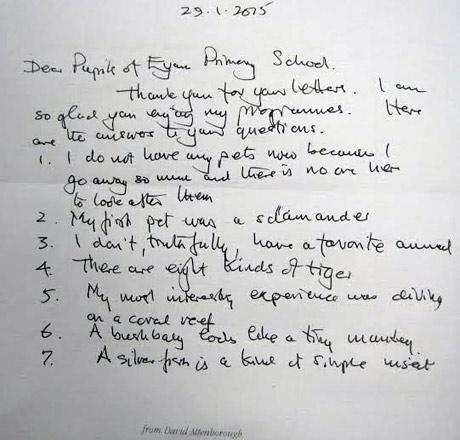 29.1.2015
Dear Pupils of Eyam Primary School.
Thank you for your letters. I am
so glad you enjoy my programmes. Here
are the answers to your questions.
1. I do not have any pets now because I
go away so much and there is no one here
to look after them
2. My first pet was a salamander
3. I don't, truthfully, have a favorite animal
4. There are eight kinds of tiger
5. My most interesting experience was diving
on a coral reef
6. A bushbaby looks like a tiny monkey.
7. A silver fish is a kind of simple insect
from David Attenborough